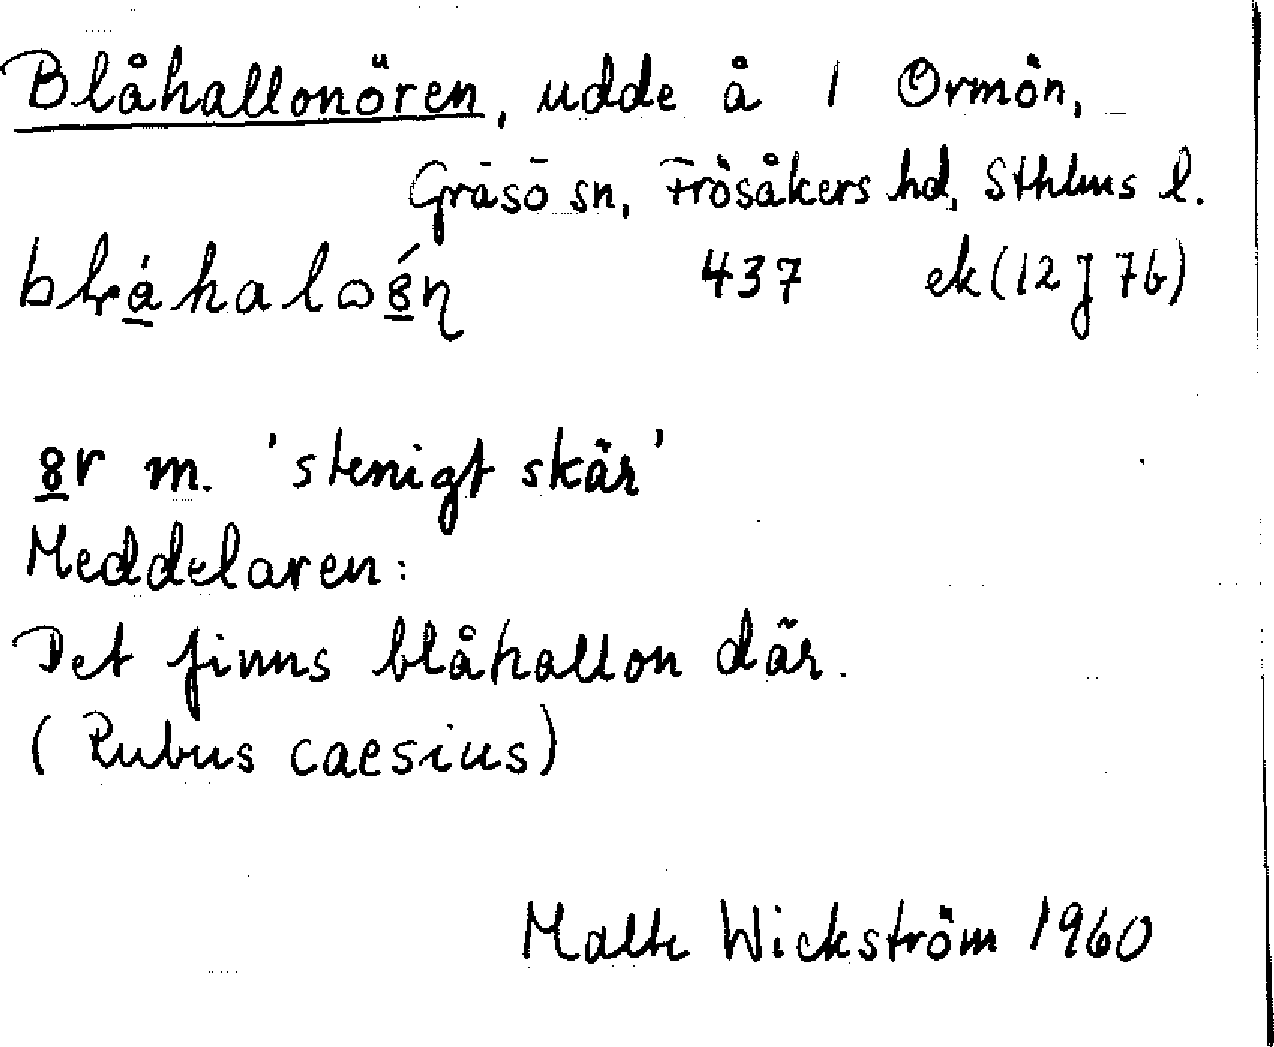 Blåhallonören, udde å 1 Ormön,
Gräsö sn, Frösåkers hd, Sthlms l.
437 ek (12 J 7b)
m. 'stenigt skär'
Meddelaren:
Det finns blåhallon där.
(Rubus caesius)
Malte Wickström 1960